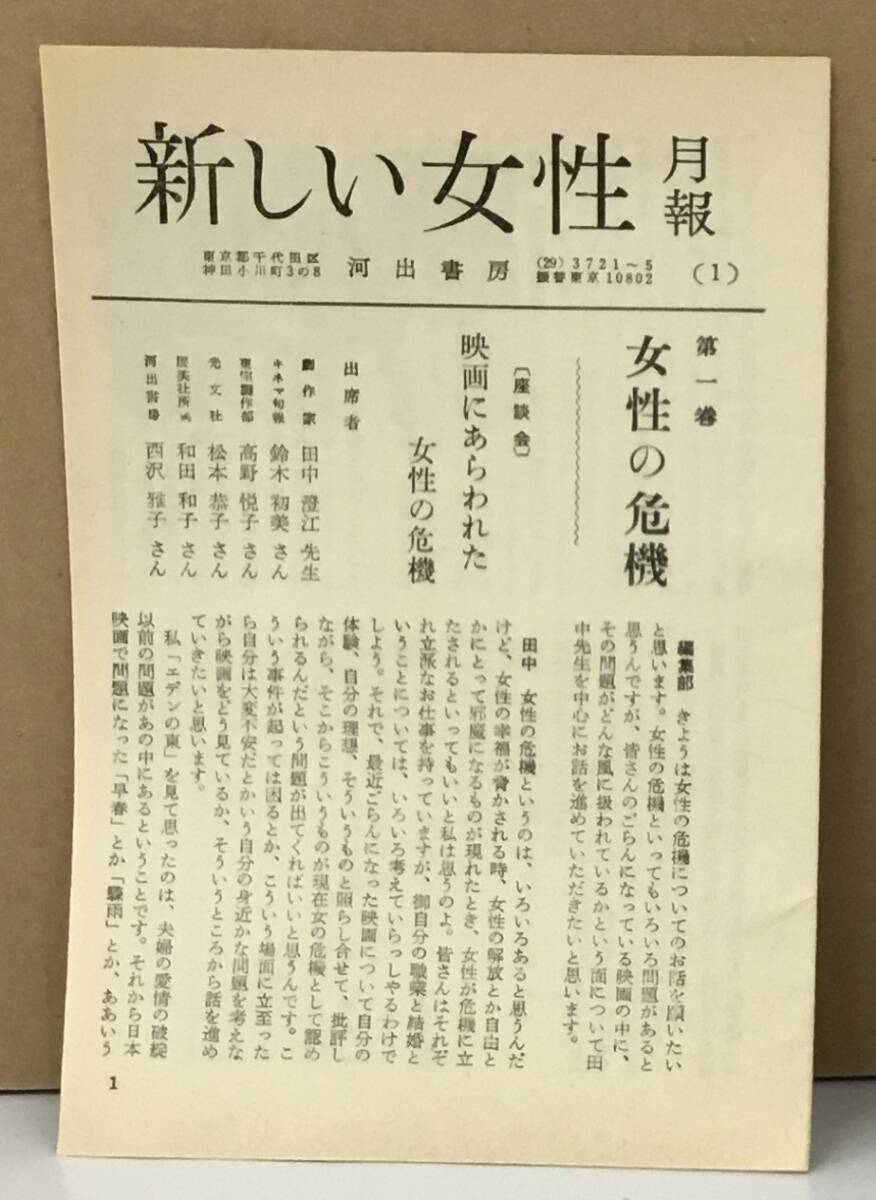 新しい女性
月報
(1)
東京都千代田区
神田小川町3の8
河出書房
(29)3721~5
振替東京10802
第一巻
女性の危機
〔座談会〕
映画にあらわれた
女性の危機
出席者
劇作家 田中澄江先生
キネマ旬報 鈴木初美さん
東宝製作部 高野悦子さん
光文社 松本恭子さん
展美社 和田和子さん
河出書房 西沢雅子さん
編集部 きょうは女性の危機についてのお話を願いたい
と思います。女性の危機といってもいろいろ問題があると
思うんですが、皆さんのごらんになっている映画の中に、
その問題がどんな風に扱われているかという面について田
中先生を中心にお話を進めていただきたいと思います。
田中 女性の危機というのは、いろいろあると思うんだ
けど、女性の幸福が脅かされる時、女性の解放とか自由と
かにとって邪魔になるものが現れたとき、女性が危機に立
たされるといってもいいと私は思うのよ。皆さんはそれぞ
れ立派なお仕事を持っていますが、御自分の職業と結婚と
いうことについては、いろいろ考えていらっしやるわけで
しよう。それで、最近ごらんになった映画について自分の
体験、自分の理想、そういうものと照らし合せて、批評し
ながら、そこからこういうものが現在女の危機として認め
られるんだという問題が出てくればいいと思うんです。こ
ういう事件が起っては困るとか、こういう場面に立至った
ら自分は大変不安だとかいう自分の身近かな問題を考えな
がら映画をどう見ているか、そういうところから話を進め
ていきたいと思います。
私「エデンの東」を見て思ったのは、夫婦の愛情の破綻
以前の問題があの中にあるということです。それから日本
映画で問題になった「早春」とか「驟雨」とか、ああいう
1